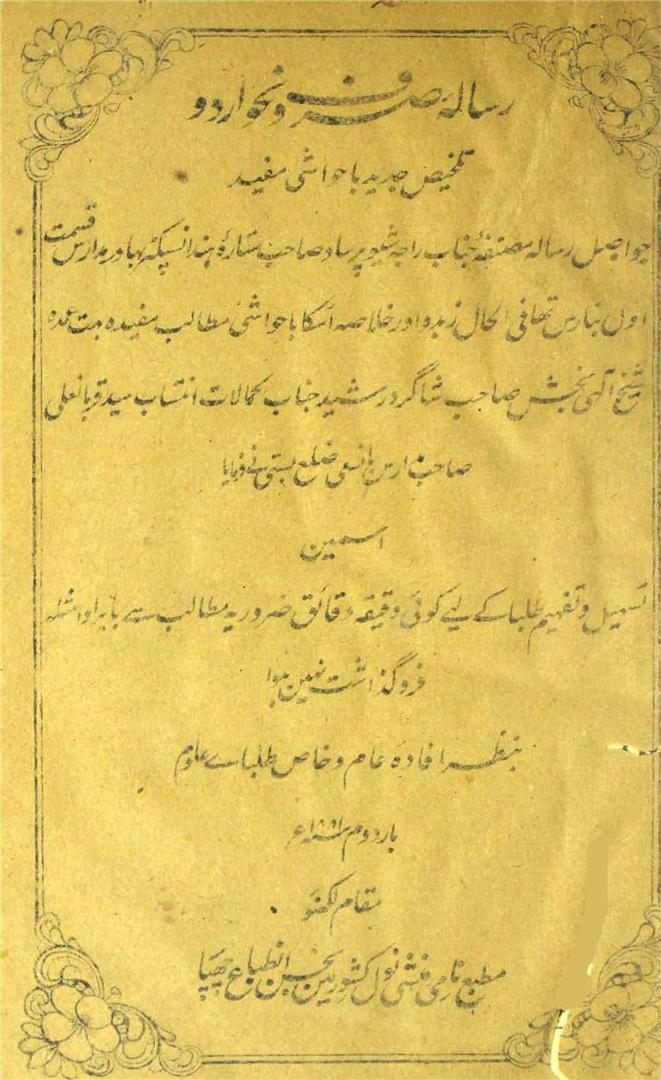 رسالۂ صرف ونحو اردو
تلخیص جدید باحواشی مفید
جو اصل رسالہ مصنفۂ جناب راجہ شیو پرساد صاحب ستارۂ ہند انسپکٹر بہادر مدارس قسمت
اول بنارس تھا فی الحال زبدہ اور خلاصہ اُسکا باحواشی مطالب مفیدہ بہت عمدہ
شیخ الٰہی بخش صاحب شاگرد رشید جناب کمالات انتساب سید قربانعلی
صاحب مدرس بانسی ضلع بستی نے فرمایا
اسمین
تسہیل وتفہیم طلبا کے لیے کوئی دقیقہ دقائق ضروریہ مطالب سے بایراد امثلہ
فروگذاشت نہین ہوا
بنظر افادہ عام وخاص طلباے علوم
بار دوم سنہ ۱۸۸۱ع
بمقام لکھنؤ
مطبع نامی منشی نول کشور مین بحسن انطباع چھپا